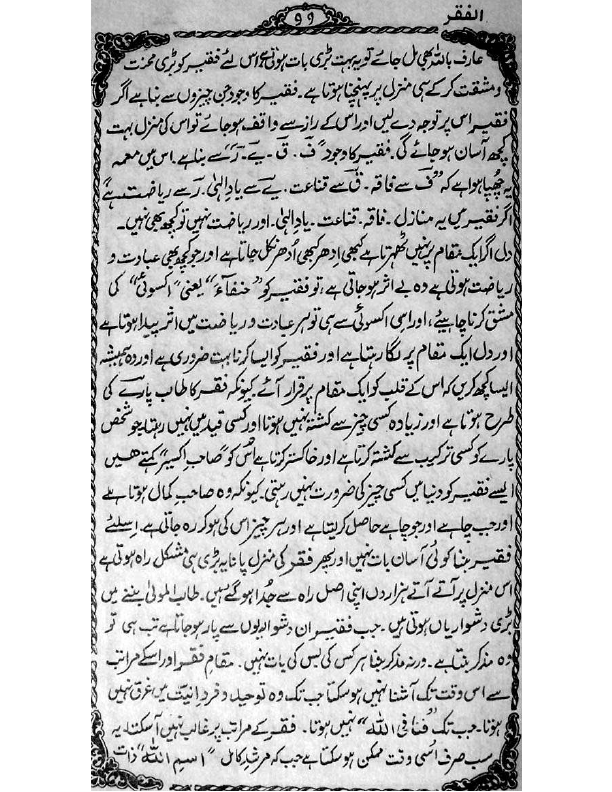 الفقر
۹۹
عارف باللہ بھی مل جائے تو یہ بہت بڑی بات ہوتی ہے اس لئے فقیر کو بڑی محنت
و مشقت کر کے ہی منزل پر پہنچنا ہوتا ہے۔ فقیر کا وجود جن چیزوں سے بنا ہے اگر
فقیر اس پر توجہ دے لیں اور اس کے راز سے واقف ہو جائے تو اس کی منزل بہت
کچھ آسان ہو جائے گی۔ فقیر کا وجود "ف۔ ق۔ ی۔ ر" سے بنا ہے۔ اس میں معمہ
یہ چھپا ہوا ہے کہ "ف سے فاقہ۔ ق سے قناعت۔ ی سے یادِ الٰہی۔ ر سے ریاضت ہے"
اگر فقیر میں یہ منازل۔ فاقہ۔ قناعت۔ یادِ الٰہی۔ اور ریاضت نہیں تو کچھ بھی نہیں۔
دل اگر ایک مقام پر نہیں ٹھہرتا ہے کبھی اِدھر کبھی اُدھر نکل جاتا ہے اور جو کچھ بھی عبادت و
ریاضت ہوتی ہے وہ بے اثر ہو جاتی ہے، تو فقیر کو "حنفآء" یعنی "اکسوئی" کی
مشق کرنا چاہیئے، اور اسی اکسوئی سے ہی تو ہر عبادت و ریاضت میں اثر پیدا ہوتا ہے
اور دل ایک مقام پر لگا رہتا ہے اور فقیر کو ایسا کرنا بہت ضروری ہے اور وہ ہمیشہ
ایسا کچھ کریں کہ اس کے قلب کو ایک مقام پر قرار آئے۔ کیونکہ فقر کا طالب پارے کی
طرح ہوتا ہے اور زیادہ کسی چیز سے کشتہ نہیں ہوتا اور کسی قید میں نہیں رہتا جو شخص
پارے کو کسی ترکیب سے کشتہ کرتا ہے اور خاکستر کرتا ہے اُس کو "صاحبِ اکسیر" کہتے ھیں
ایسے فقیر کو دنیا میں کسی چیز کی ضرورت نہیں رہتی۔ کیونکہ وہ صاحبِ کمال ہوتا ہے
اور جب چاہے اور جو چاہے حاصل کر لیتا ہے اور ہر چیز اس کی ہو کر رہ جاتی ہے۔ اسلئے
فقیر بننا کوئی آسان بات نہیں اور پھر فقر کی منزل پانا یہ بڑی ہی مشکل راہ ہوتی ہے
اس منزل پر آتے آتے ہزاردں اپنی اصل راہ سے جُدا ہو گئے ہیں۔ طالب المولیٰ بننے میں
بڑی دشواریاں ہوتی ہیں۔ جب فقیر ان دشواریوں سے پار ہو جاتا ہے تب ہی تو
وہ مذکر بنتا ہے۔ ورنہ مذکر بننا ہر کس کی بس کی بات نہیں۔ مقامِ فقر اور اسکے مراتب
سے اس وقت تک آشنا نہیں ہو سکتا جب تک وہ توحید و فردانیت میں غرق نہیں
ہوتا۔ جب تک "فنا فی اللہ" نہیں ہوتا۔ فقر کے مراتب پر غالب نہیں آ سکتا۔ یہ
سب صرف اُسی وقت ممکن ہو سکتا ہے جب کہ مرشدِ کامل "اسمِ اللہ" ذات